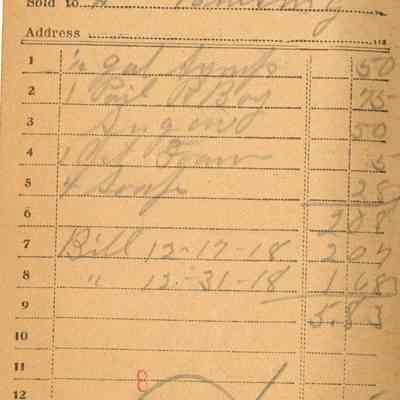 Sold to
Address
1 ½ gal syrup 50
2 1 Pail R Boy 75
3 Sugar 50
4 1 5
5 4 Soap 28
6 208
7 Bill 12-17-18 207
8 " 12-31-18 168
9 5.83
10
11
8
12